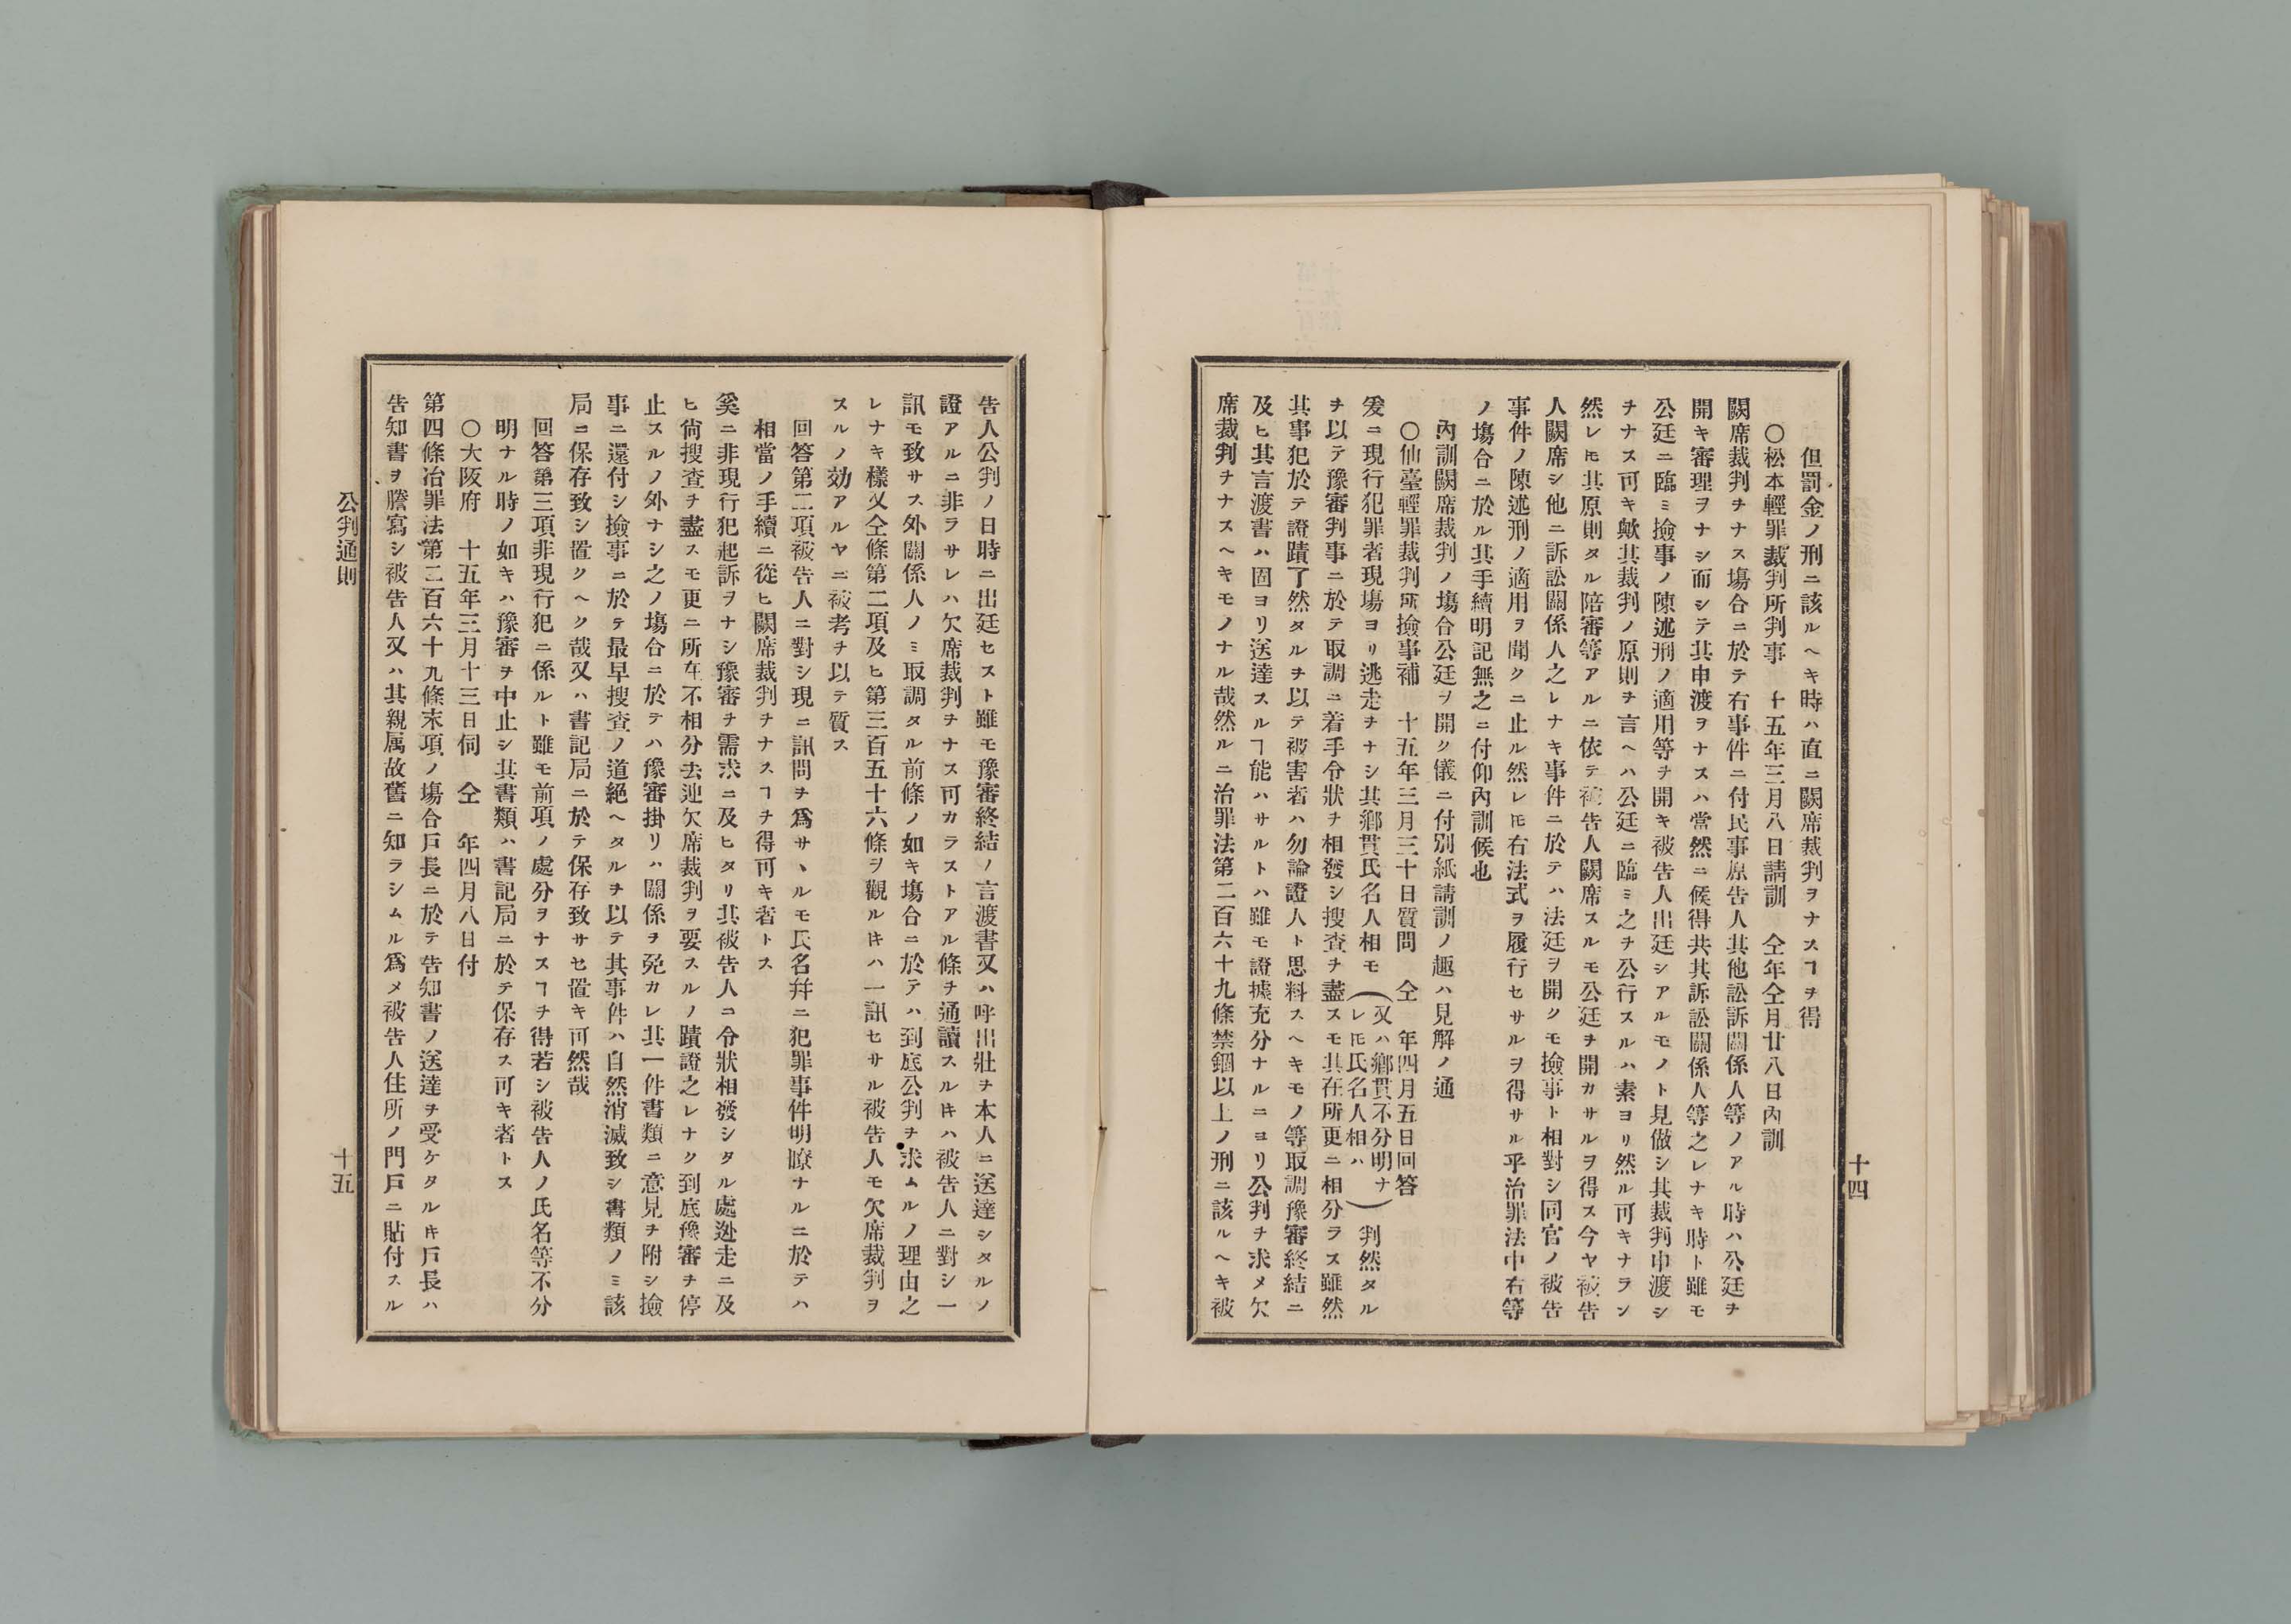 但罰金ノ刑ニ該ルヘキ時ハ直ニ闕席裁判ヲナスヿヲ得
〇松本輕罪裁判所判事　十五年三月八日請訓　仝年仝月廿八日內訓
闕席裁判ヲナス塲合ニ於テ右事件ニ付民事原告人其他訟訴關係人等ノアル時ハ公廷ヲ
開キ審理ヲナシ而シテ其申渡ヲナスハ當然ニ候得共其訴訟關係人等之レナキ時ト雖モ
公廷ニ臨ミ撿事ノ陳述刑ノ適用等ヲ開キ被告人出廷シアルモノト見做シ其裁判申渡シ
ヲナス可キ歟其裁判ノ原則ヲ言ヘハ公廷ニ臨ミ之ヲ公行スルハ素ヨリ然ル可キナラン
然レ𪜈其原則タル陪審等アルニ依テ被告人闕席スルモ公廷ヲ開カサルヲ得ス今ヤ被告
人闕席シ他ニ訴訟關係人之レナキ事件ニ於テハ法廷ヲ開クモ撿事ト相對シ同官ノ被告
事件ノ陳述刑ノ適用ヲ聞クニ止ル然レ𪜈右法式ヲ履行セサルヲ得サル乎治罪法中右等
ノ塲合ニ於ル其手續明記無之ニ付仰內訓候也
內訓闕席裁判ノ塲合公廷ヲ開ク儀ニ付別紙請訓ノ趣ハ見解ノ通
〇仙臺輕罪裁判所撿事補　十五年三月三十日質問　仝　年四月五日回答
爰ニ現行犯罪者現塲ヨリ逃走ヲナシ其鄕貫氏名人相モ（又ハ鄕貫不分明ナレ𪜈氏名人相ハ）判然タル
ヲ以テ豫審判事ニ於テ取調ニ着手令狀ヲ相發シ搜査ヲ盡スモ其在所更ニ相分ラス雖然
其事犯於テ證蹟了然タルヲ以テ被害者ハ勿論證人ト思料スヘキモノ等取調豫審終結ニ
及ヒ其言渡書ハ固ヨリ送達スルヿ能ハサルトハ雖モ證據充分ナルニヨリ公判ヲ求メ欠
席裁判ヲナスヘキモノナル哉然ルニ治罪法第二百六十九條禁錮以上ノ刑ニ該ルヘキ被
十四
告人公判ノ日時ニ出廷セスト雖モ豫審終結ノ言渡書又ハ呼出狀ヲ本人ニ送達シタルノ
證アルニ非ラサレハ欠席裁判ヲナス可カラストアル條ヲ通讀スル𪜈ハ被告人ニ對シ一
訊モ致サス外關係人ノミ取調タル前條ノ如キ塲合ニ於テハ到底公判ヲ求ムルノ理由之
レナキ樣又仝條第二項及ヒ第三百五十六條ヲ觀ル𪜈ハ一訊セサル被告人モ欠席裁判ヲ
スルノ効アルヤニ被考ヲ以テ質ス
回答第二項被告人ニ對シ現ニ訊問ヲ爲サヽルモ氏名幷ニ犯罪事件明瞭ナルニ於テハ
相當ノ手續ニ從ヒ闕席裁判ヲナスヿヲ得可キ者トス
爰ニ非現行犯起訴ヲナシ豫審ヲ需求ニ及ヒタリ其被告人ニ令狀相發シタル處逃走ニ及
ヒ尙搜査ヲ盡スモ更ニ所在不相分去迚欠席裁判ヲ要スルノ蹟證之レナク到底豫審ヲ停
止スルノ外ナシ之ノ塲合ニ於テハ豫審掛リハ關係ヲ免カレ其一件書類ニ意見ヲ附シ撿
事ニ還付シ撿事ニ於テ最早搜査ノ道絕ヘタルヲ以テ其事件ハ自然消滅致シ書類ノミ該
局ニ保存致シ置クヘク哉又ハ書記局ニ於テ保存致サセ置キ可然哉
回答第三項非現行犯ニ係ルト雖モ前項ノ處分ヲナスヿヲ得若シ被告人ノ氏名等不分
明ナル時ノ如キハ豫審ヲ中止シ其書類ハ書記局ニ於テ保存ス可キ者トス
〇大阪府　十五年三月十三日伺　仝　年四月八日付
第四條治罪法第二百六十九條末項ノ塲合戶長ニ於テ告知書ノ送達ヲ受ケタル𪜈戶長ハ
告知書ヲ謄寫シ被告人又ハ其親属故舊ニ知ラシムル爲メ被告人住所ノ門戶ニ貼付スル
公判通則
十五